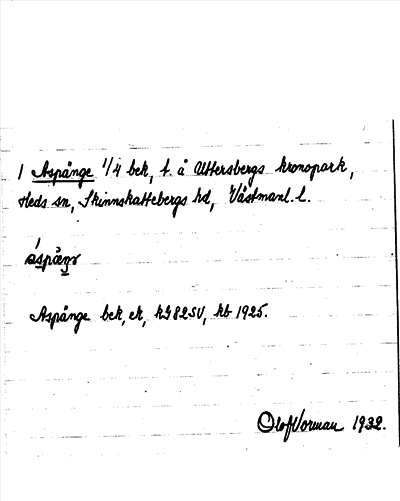 1 Aspänge 1/4 bek, t. å Uttersbergs kronopark,
Heds sn, Skinnskattebergs hd, Västmanl. l.
Aspänge bek, ek, kG 82SV, kb 1925.
Olof Vorman 1932.